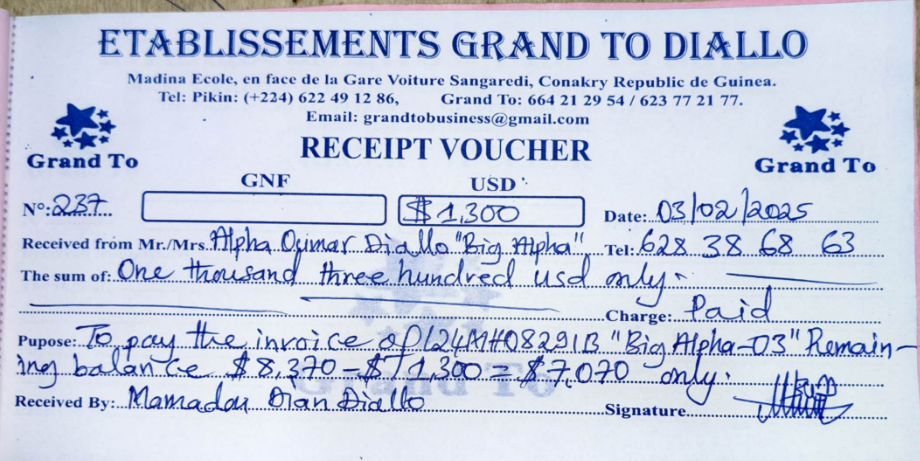 ETABLISSEMENTS GRAND TO DIALLO
Madina Ecole, en face de la Gare Voiture Sangaredi, Conakry Republic de Guinea.
Tel: Pikin: (+224) 622 49 12 86, Grand To: 664 21 29 54 / 623 77 21 77.
Email: grandtobusiness@gmail.com
Grand To RECEIPT VOUCHER Grand To
GNF USD
N°: 237 $ 1,300 Date: 03/02/2025
Received from Mr./Mrs. Alpha Oumar Diallo "Big Alpha" Tel: 628 38 68 63
The sum of: One thousand three hundred usd only.
Charge: Paid
Pupose: To pay the invoice of "Big Alpha-03" Remain-
ing balance $8,370 - $1,300 = $7,070 only.
Grand To
Received By: Mamadou Dian Diallo Signature